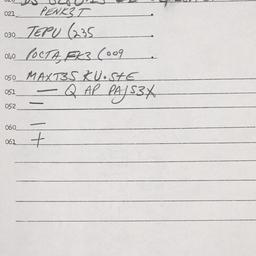 021 PENKЗT .
030 TEPU (235
040 POCTA, FKЗ (009 .
050 MAXTЗS KU.StE
051 — Q AP PAJSЗX
052 —
060 —
061 +